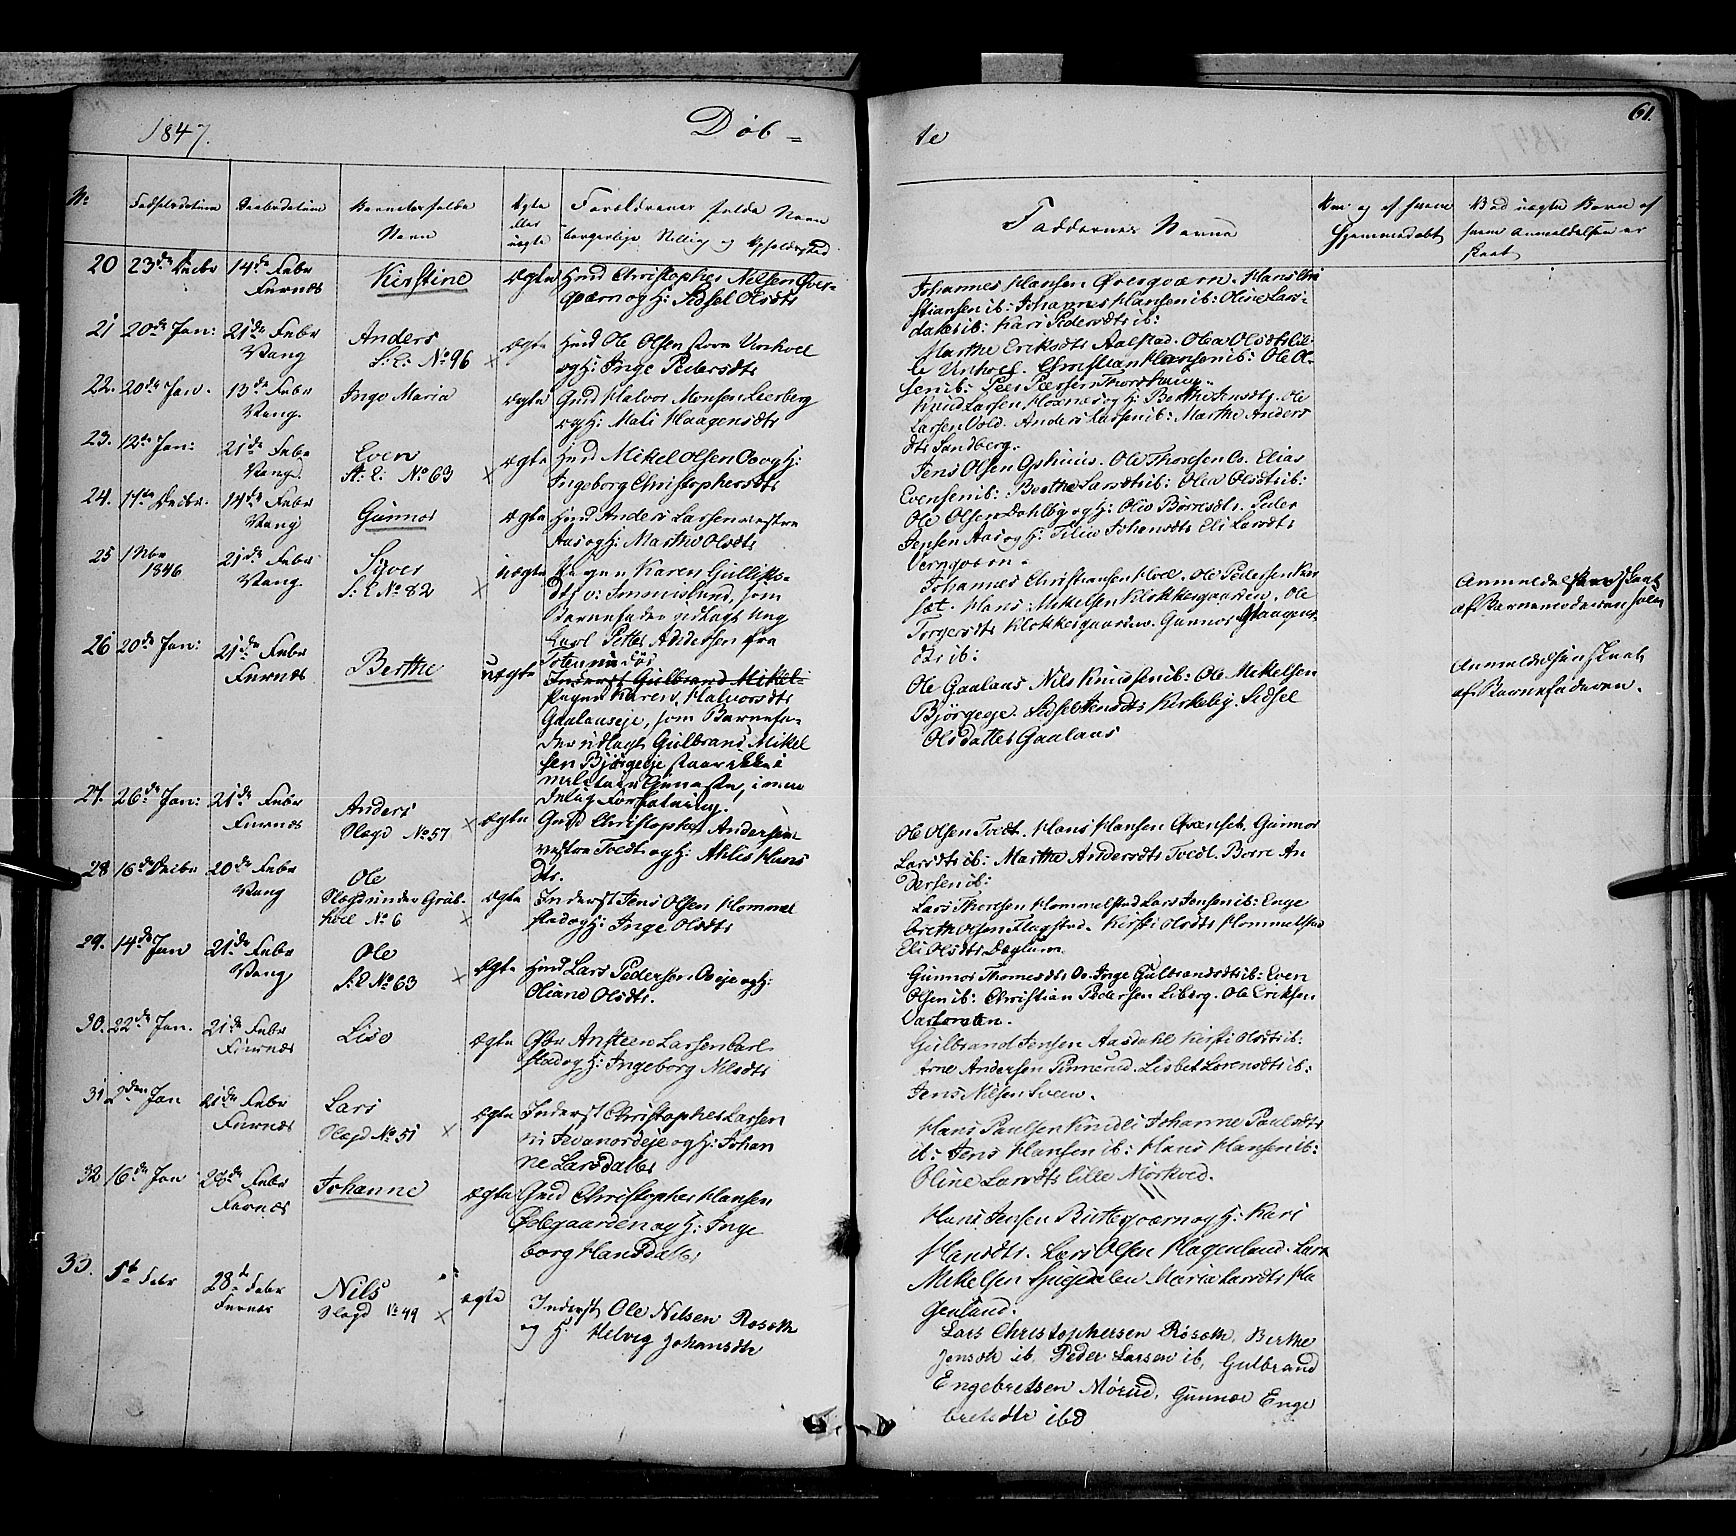 1847.
Døb=
te
61.
No
Fødselsdatum
Daabsdatum
Barnets fulde
Navn
Ægte
eller
uægte
Forældrenes fulde Navn
borgerlige Stilling og Opholdssted
Faddernes Navne
Naar og af hvem
hjemmedøbt
Ved uægte Børn af
hvem Anmeldelsen er
skeet
20 23de Decbr 14de Febr
Furnæs
Kirstine
ægte
Hmd Christopher Nilsen Øver-
qværn og H: Sidsel Olsdtr
Johannes Hansen Øverqværn. Hans Chri
stiansen ib: Johannes Hansen ib: Oline Lars-
datter ib: Kari Pedersdtr ib:
21 20de Jan: 21de Febr
Vang
Anders
S: L: No 96 x
ægte
Hmd Ole Olsen store
og H: Inge Pedersdtr
Marthe Eriksdtr Aalstad. Olea Olsdtr lil-
le Christian Hansen ib: Ole Ol-
sen ib: Peer Persen
22. 20de Jan. 13de Febr
Vang.
Inge Maria
ægte
Gmd Halvor Monsen Leerberg
og H: Mali Haagensdtr
Knud Larsen og H: Berthe Jensdtr. Ole
Larsen Vold. Anders Larsen ib: Marthe Anders
dtr Sandberg.
23. 12te Jan: 21de Febr
Vang.
Even
St: L: No 63 x
ægte
Hmd Mikel Olsen Oo og H:
Ingeborg Christophersdtr
Jens Olsen Opshuus. Ole Thoresen Oo. Elias
Evensen ib: Berthe Larsdtr ib: Olea Olsdtr ib:
24. 17de Decbr. 14de Febr
Vang
Gunnor
ægte
Hmd Anders Larsen vestre
Aas og H: Marthe Olsdtr
Ole Olsen Dahlby og H: Olia Børresdtr. Peder
Jensen Aas og H: Johansdtr Eli Larsdtr
Berqværn.
25 1 Nbr
1846
21de Febr
Vang.
Syver
S: L No 82 x
uægte
Pigen Karen Gulliks-
dtr v: som
Barnefader udlagt Ung
karl Petter Andersen fra
Toten
Johannes Christiansen Hoel. Ole Pedersen
sæt. Hans Mikelsen Klokkergaarden. Ole
Torgersdtr Klokkergaarden. Gunnor Haagens
dtr ib:
Anmeldelsen skeet
af Barnemoderen selv
26 20de Jan: 21de Febr
Furnæs
Berthe
uægte
Inderst Gulbrand Mikel-
Pigen Karen Halvorsdtr
Gaalaaseje, som Barnefa-
der udlagt Gulbrand Mikel
sen Bjørgeeje staar ikke i
militair Tjeneste,
Forfatning.
Ole Gaalaas Nils Knudsen ib: Ole Mikelsen
Bjørgeeje. Sidsel Jensdtr Kirkeby. Sidsel
Olsdatter Gaalaas
Anmeldelsen skeet
af Barnefaderen.
27. 26de Jan: 21de Febr
Furnæs
Anders
Slagd No 57 x
ægte
Gmd Christopher Andersen
vestre Tvedt og H: Ahlis Hans
dtr.
Ole Olsen Tvedt. Hans Hansen Grænset. Gunnor
Larsdtr ib: Marthe Andersdtr Tvedt. Børre An
dersen ib:
28 16de Decbr 20de Febr
Vang
Ole
Slagd under Grøt-
hoel No 6 x
ægte
Inderst Jens Olsen Hommel
stad og H: Inge Olsdtr
Lars Thoresen Hommelstad Lars Jensen ib: Enge
breth Olsen Flagstad. Kirsti Olsdtr Hommelstad
Eli Olsdtr Døglum
29. 14de Jan 21de Febr
Vang
Ole
S: L No 63 x
ægte
Hmd Lars Pedersen Ooeje og H:
Oliane Olsdtr.
Gunnor Thomesdtr Oo. Inge Gulbrandsdtr ib: Even
Olsen ib: Christian Pedersen Liberg. Ole Eriksen
30. 22de Jan. 21de Febr
Furnæs
Lise
ægte
Gbr Ansteen Larsen Carl
stad og H: Ingeborg Nilsdtr
Gulbrand Jensen Aasdahl Kirsti Olsdtr ib:
Arne Andersen Pinnerud. Lisbet Lorensdtr ib:
Jens Nilsen Sveen.
31. 2den Jan 21de Febr
Furnæs
Lars
Slagd No 51 x
ægte
Inderst Christopher Larsen
og H: Johan
ne Larsdatter
Hans Paulsen Johanne Paulsdtr
ib: Jens Hansen ib: Hans Hansen ib:
Oline Larsdtr lille Mørkved.
32 16de Jan 28de Febr
Furnæs
Johanne
ægte
Gmd Christopher Hansen
Ødegaarden og H: Inge
borg Hansdatter
Hans Jensen Butteqværn og H: Kari
Hansdtr. Lars Olsen Hagenlund. Lars
Mikelsen Maria Larsdtr Ha
genlund.
33. 5te Febr 28de Febr
Furnæs
Nils
Slagd No 49 x
ægte
Inderst Ole Nilsen Roseth
og H. Helvig Johansdtr
Lars Christophersen Røseth. Berthe
Jensdtr ib, Peder Larsen ib, Gulbrand
Engebretsen Mørud. Gunnor Enge
bretsdtr ibd